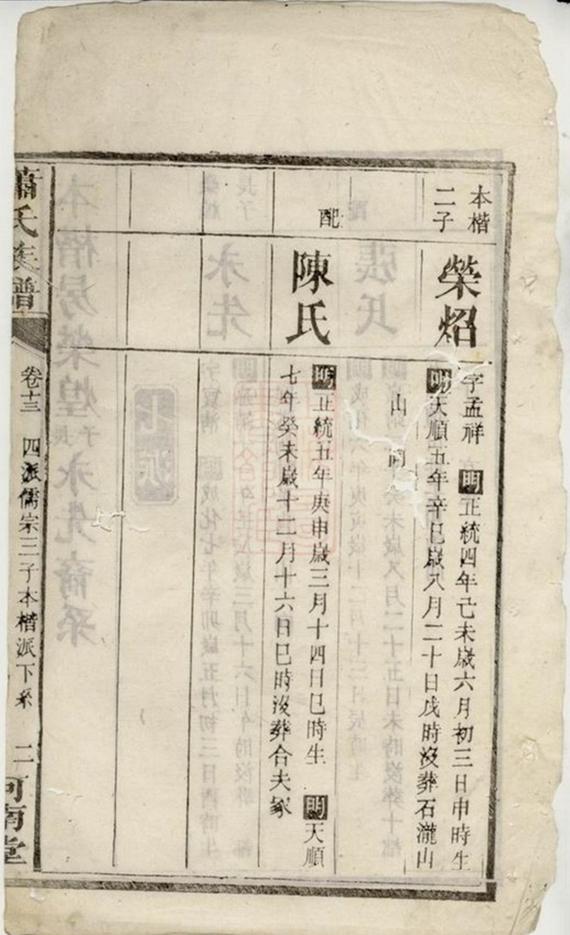 本楷
二子
榮炤
字孟祥 明正統四年己未歲六月初三日申時生
明天順五年辛巳歲八月二十日戌時沒葬石瀧山
山向
配
陳氏
明正統五年庚申歲三月十四日巳時生 明天順
七年癸未歲十二月十六日巳時沒葬合夫冢
蕭氏族譜
卷十三 四派儒宗三子本楷派下系 二
河南堂